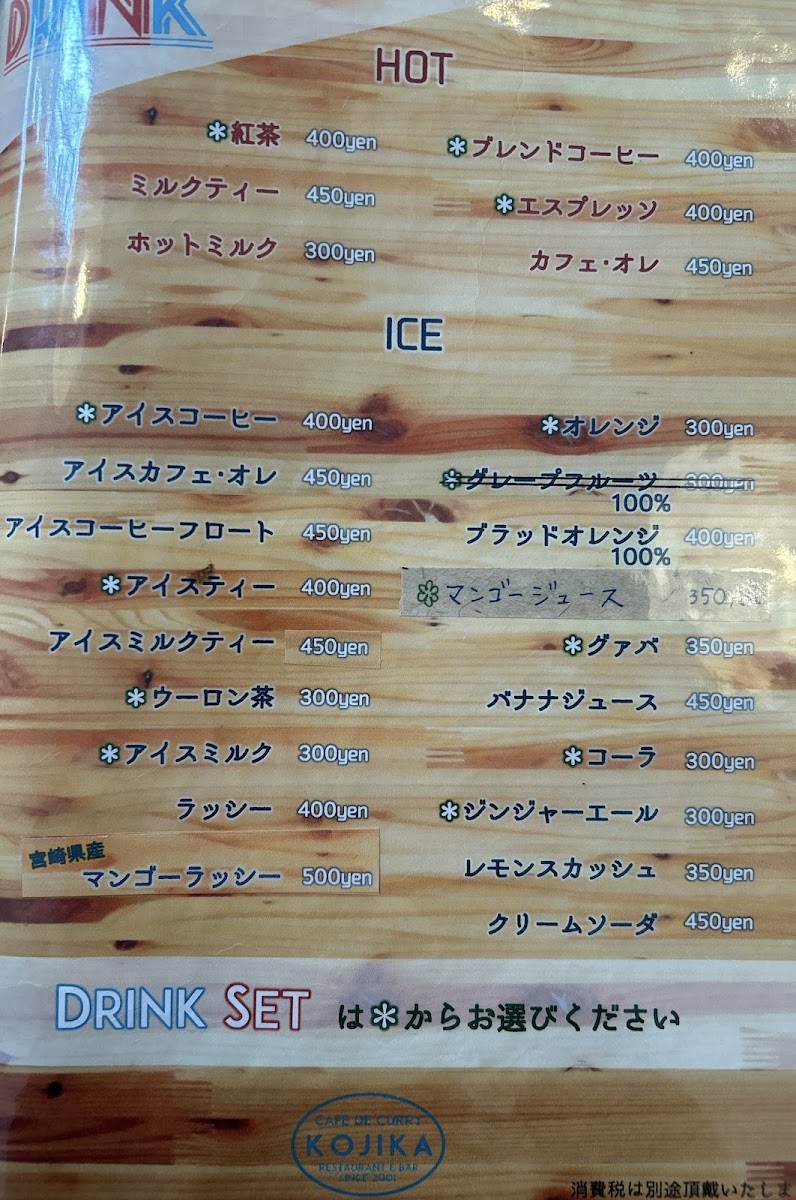 DRINK
HOT
*紅茶 400yen
ミルクティー 450yen
ホットミルク 300yen
*ブレンドコーヒー 400yen
*エスプレッソ 400yen
カフェ・オレ 450yen
ICE
*アイスコーヒー 400yen
アイスカフェ・オレ 450yen
アイスコーヒーフロート 450yen
*アイスティー 400yen
アイスミルクティー 450yen
*ウーロン茶 300yen
*アイスミルク 300yen
ラッシー 400yen
宮崎県産
マンゴーラッシー 500yen
*オレンジ 300yen
*グレープフルーツ 300yen
100%
ブラッドオレンジ 400yen
100%
*マンゴージュース 350
*グァバ 350yen
バナナジュース 450yen
*コーラ 300yen
*ジンジャーエール 300yen
レモンスカッシュ 350yen
クリームソーダ 450yen
DRINK SET は*からお選びください
CAFE DE CURRY
KOJIKA
RESTAURANT & BAR
SINCE 2001
消費税は別途頂戴いたしま